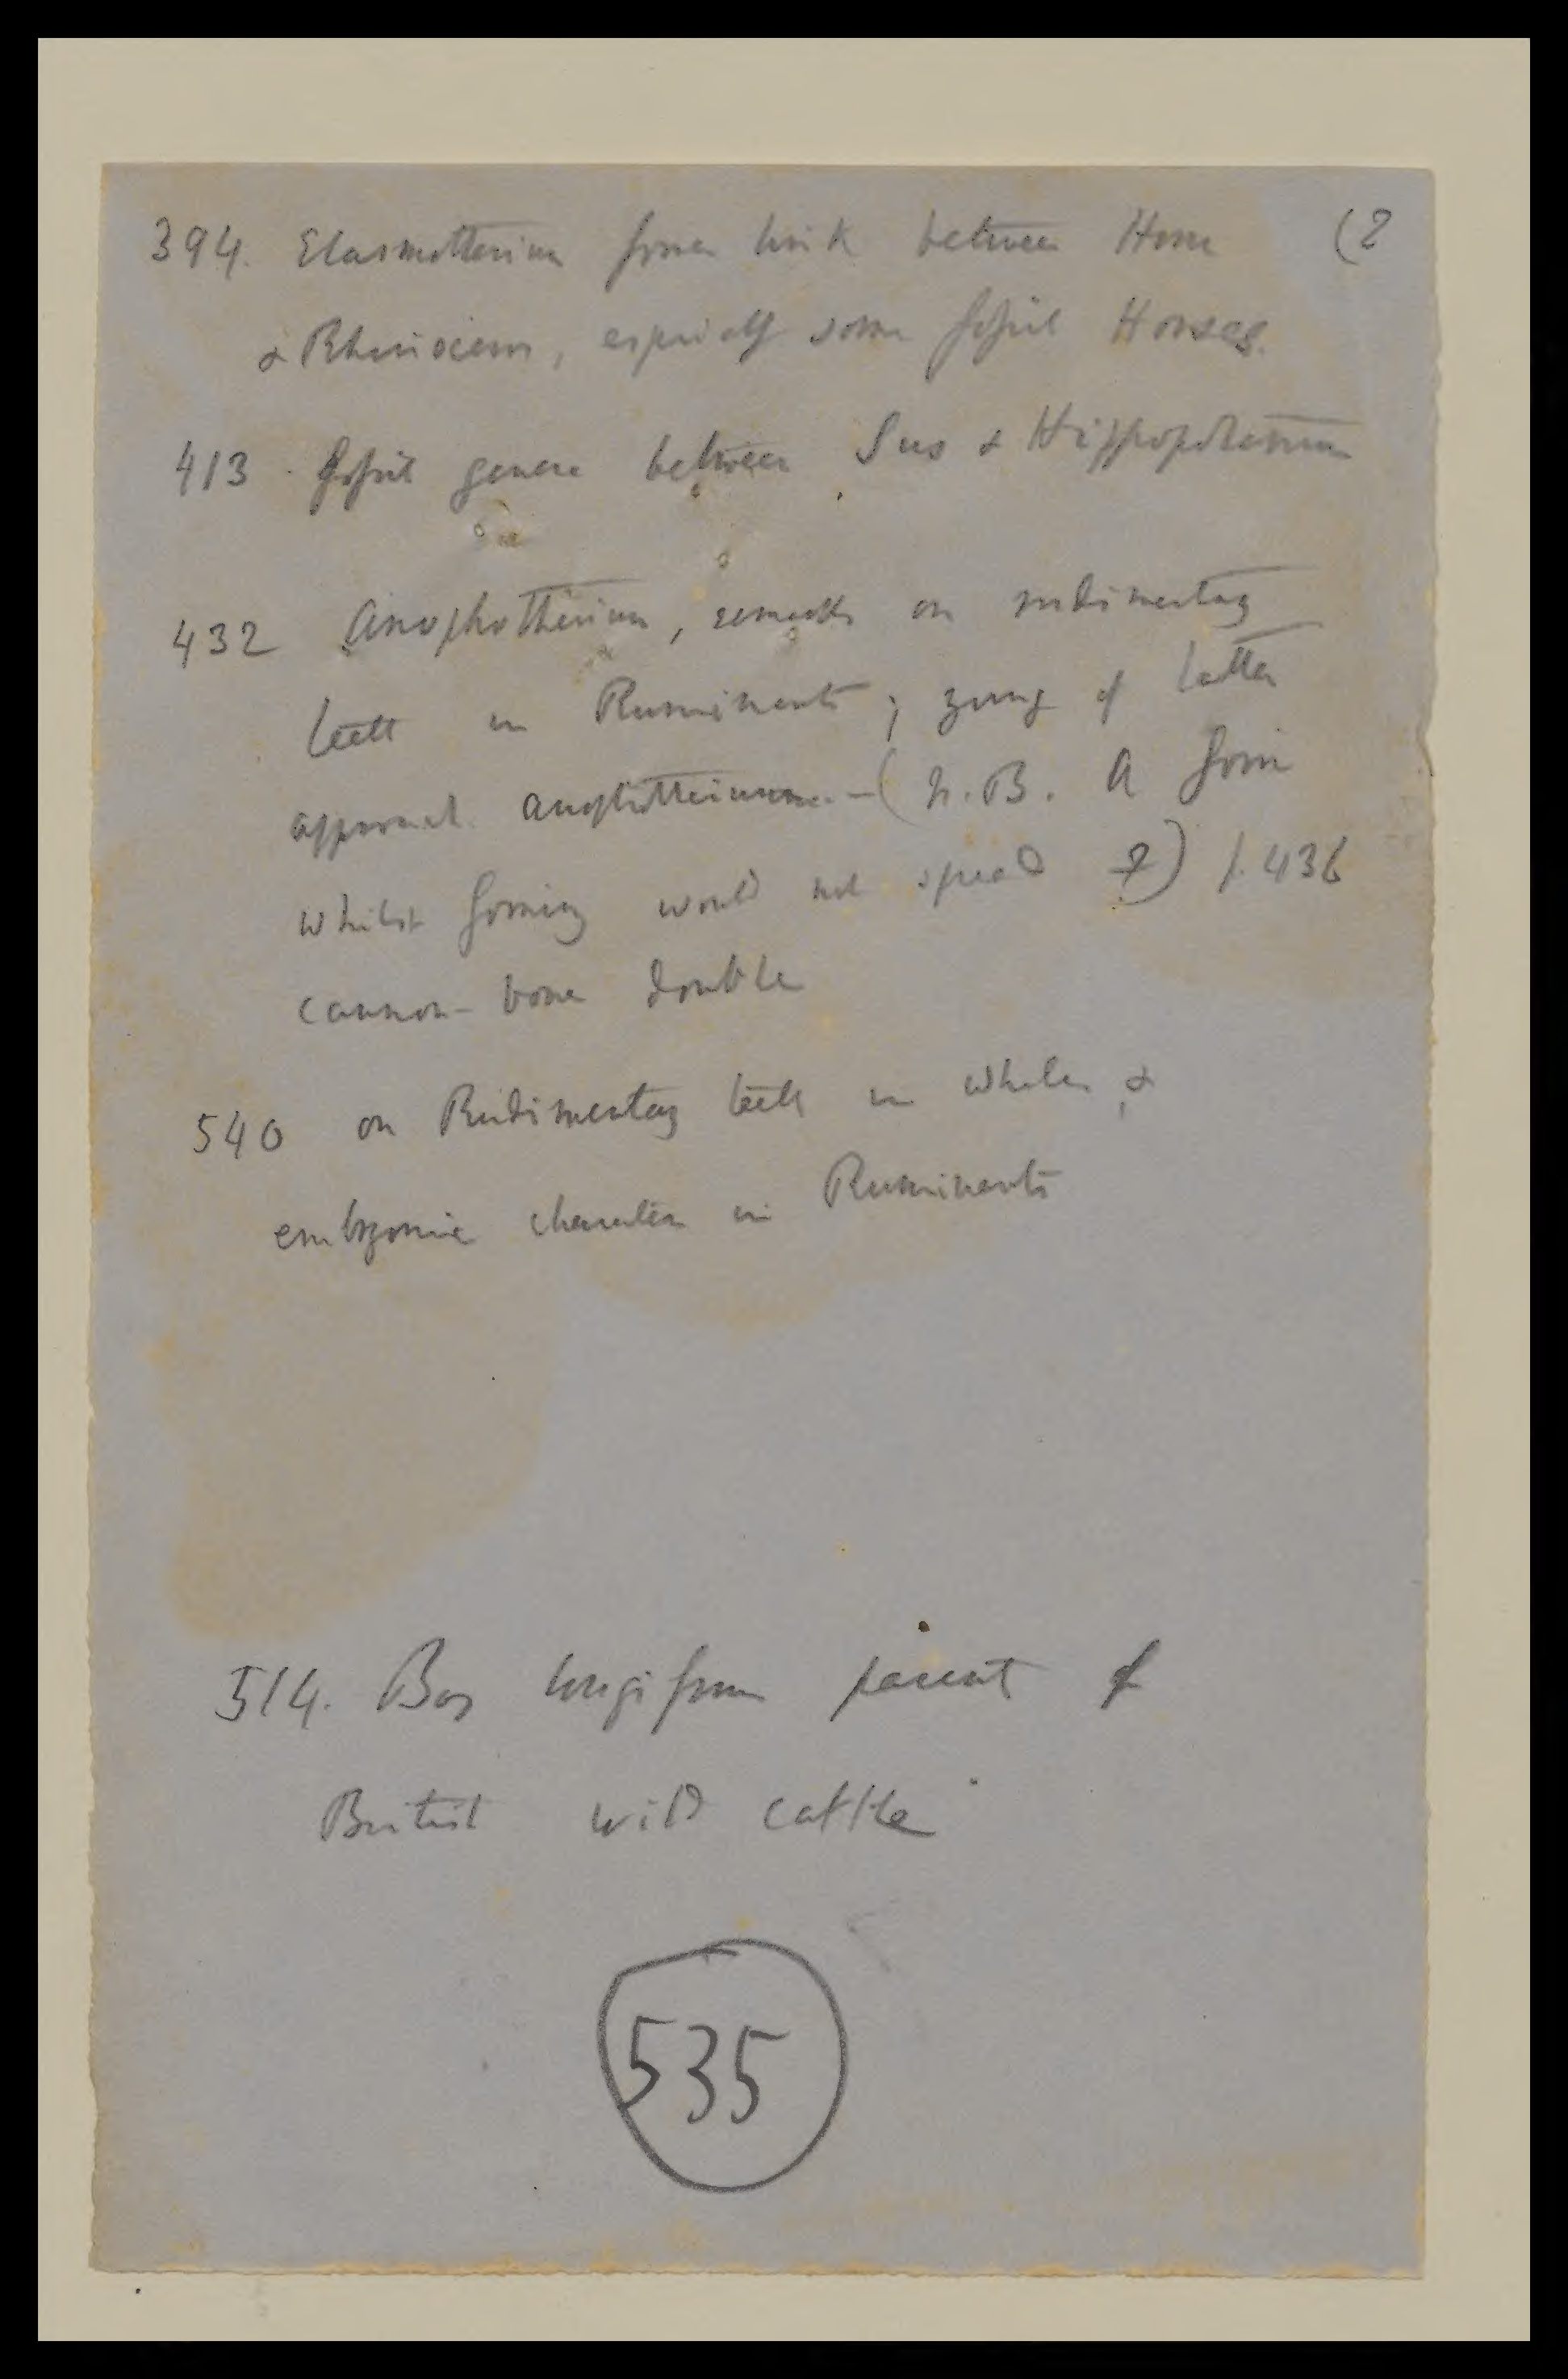 394. Elasmotherium forms link between Horse (2
& Rhinoceros, especially some fossil Horses.
413 . fossil genera between Sus & Hippopotamus
432 Anoplotherium, remarks on rudimentary
teeth in Ruminants; young of latter
approach anoplotherium.—(N.B. A form
whilst forming would not spread ?) p. 436
cannon-bone double
540 on Rudimentary teeth in whales, &
embryonic characters in Ruminants
514. Bos longifrons parent of
British wild cattle
535